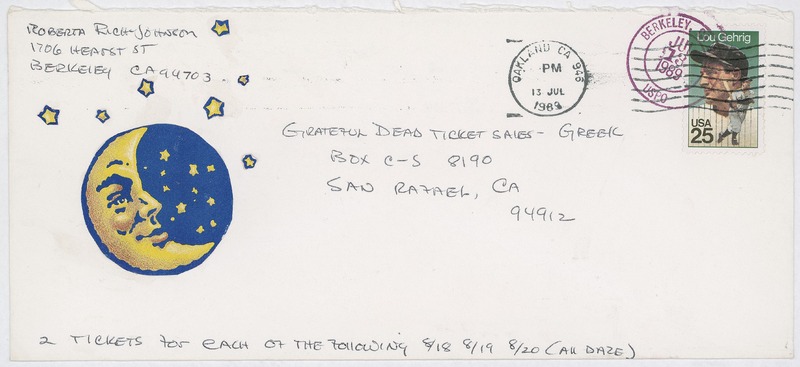 ROBERTA RICH-JOHNSON
1706 HEARST ST
BERKELEY CA 94703
OAKLAND CA 946
PM
13 JUL
1989
BERKELEY, C
JUL
13
1989
USPO
Lou Gehrig
USA
25
GRATEFUL DEAD TICKET SALES - GREEK
BOX C-S 8190
SAN RAFAEL, CA
94912
2 TICKETS FOR EACH OF THE FOLLOWING 8/18 8/19 8/20 (ALL DAZE)